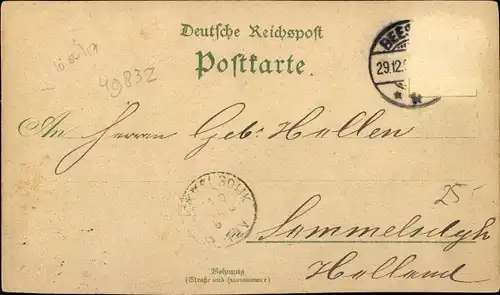 Deutsche Reichspost
Postkarte.
BEES
29.12.
49832
An Herren Gebr. Hellen
25
Sommelsdyk
Holland
Wohnung
(Straße und Hausnummer)